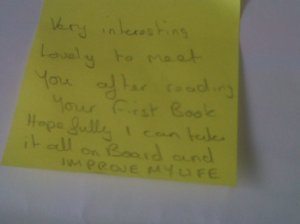 Very interesting
Lovely to meet
You after reading
Your First Book
Hopefully I can take
it all on Board and
IMPROVE MY LIFE